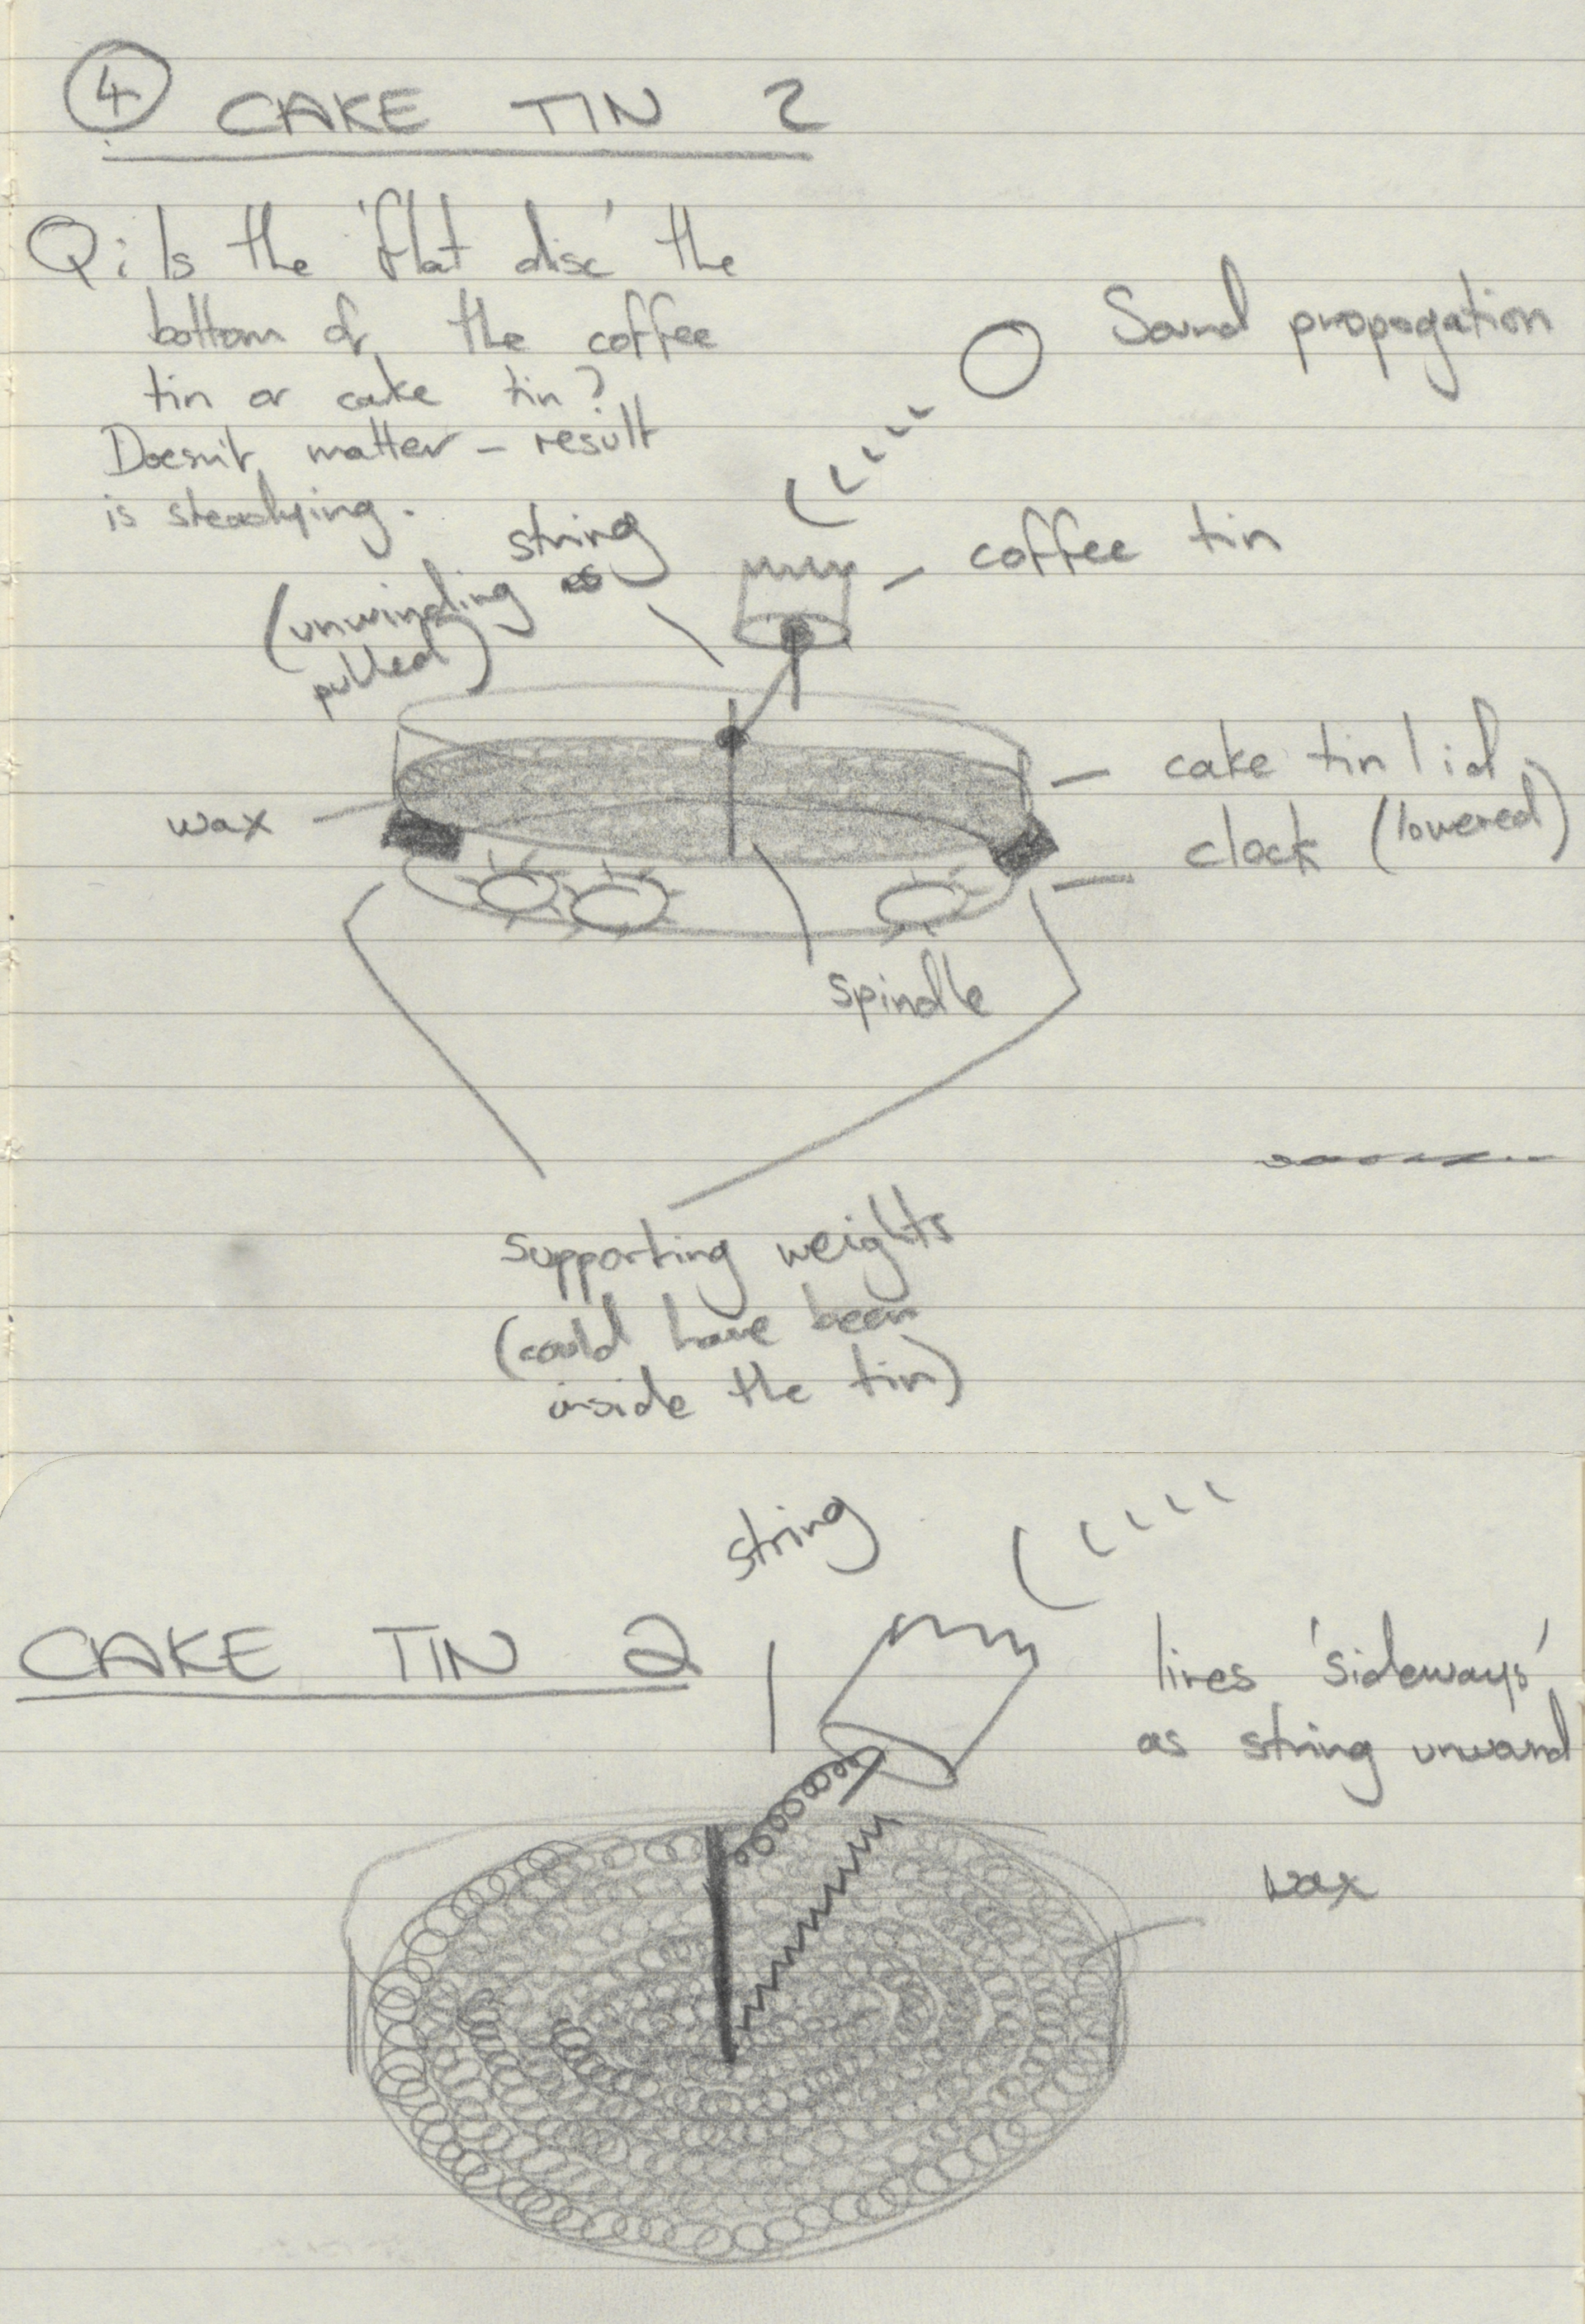 4 CAKE TIN 2
Q: Is the 'flat disc' the
bottom of the coffee
tin or cake tin?
Doesn't matter - result
is steadying.
Sound propogation
string
(unwinding as
pulled)
coffee tin
wax
cake tin lid
clock (lowered)
spindle
supporting weights
(could have been
inside the tin)
string
CAKE TIN 2
lines 'sideways'
as string unwound
wax